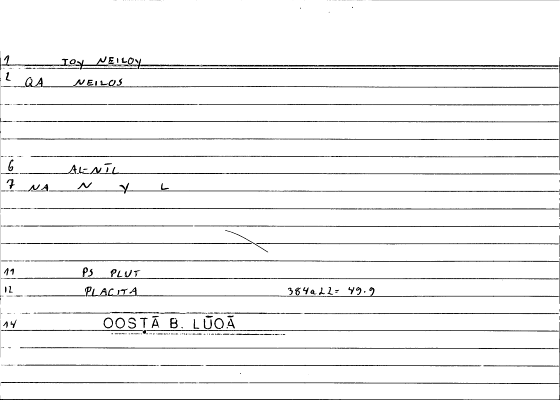 1 TOY NEILOY
2 QA NEILOS
6 AL-NĪL
7 NA N Y L
11 PS PLUT
12 PLACITA 384a22= 49.9
14 QOSṬĀ B. LŪQĀ